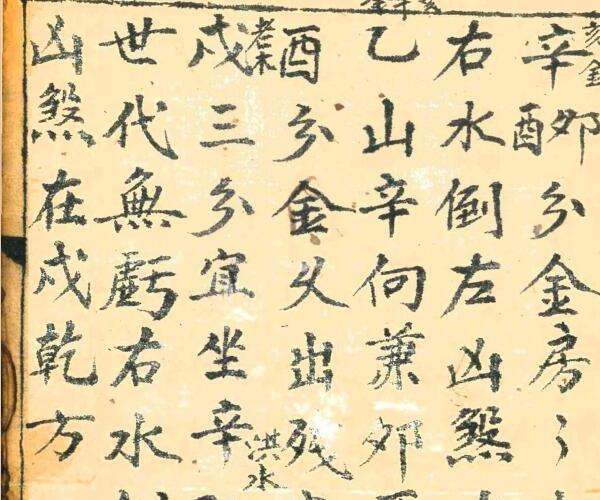 辛卯酉分金房〻
右水倒左凶煞
乙山辛向兼卯
酉分金乂出殘
戌三分宜坐辛
世代無虧右水
凶煞在戌乾方
洪水